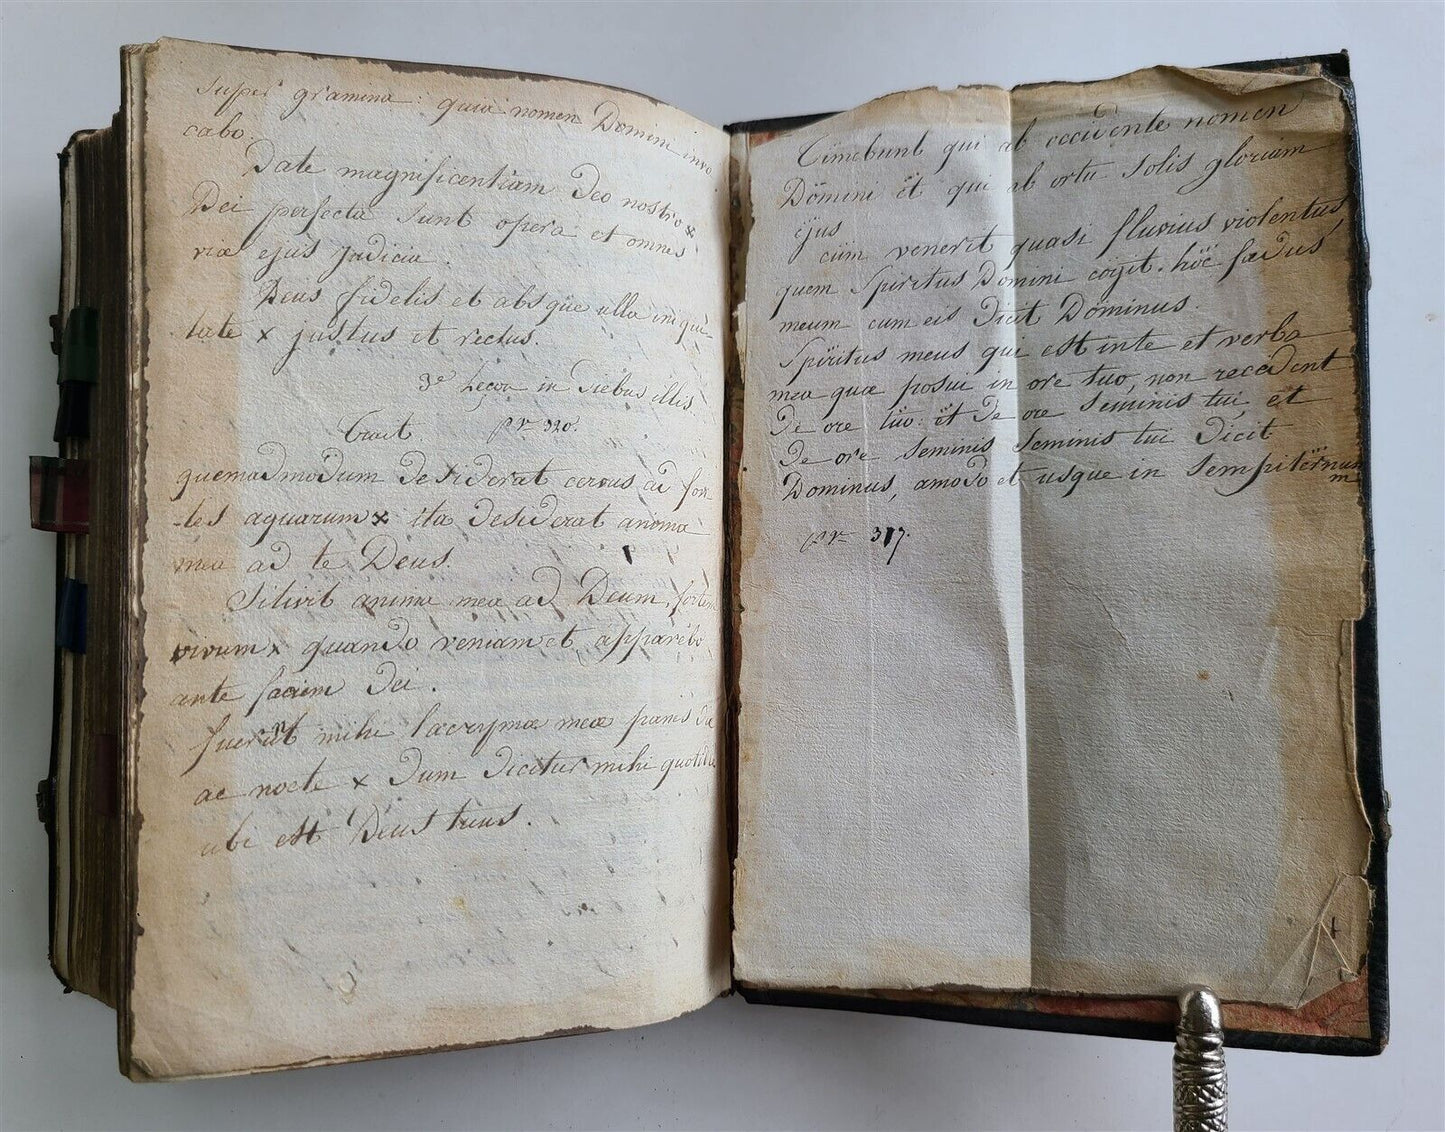 super gramina: quia nomen Domini invo
cabo.
Date magnificentiam Deo nostro x
Dei perfecta sunt opera et omnes
viæ ejus Judicia.
Deus fidelis et absque ulla iniqui-
tate x justus et rectus.
3e Leçon in diebus illis
Trait. pr 320.
quemadmodum desiderat cervus ad fon
-tes aquarum x ita desiderat anima
mea ad te Deus.
Sitivit anima mea ad Deum, fortem
vivum x quando veniam et apparebo
ante faciem Dei.
fuerunt mihi lacrymæ meæ panes die
ac nocte x dum dicitur mihi quotidie
ubi est Deus tuus.
Timebunt qui ab occidente nomen
Domini et qui ab ortu solis gloriam
ejus
cum venerit quasi fluvius violentus
quem Spiritus Domini cogit. hoc fædus
meum cum eis dicit Dominus.
Spiritus meus qui est in te et verba
mea quæ posui in ore tuo, non recedent
de ore tuo: et de ore seminis tui, et
de ore seminis seminis tui dicit
Dominus, amodo et usque in sempiternum
m
pr 317.